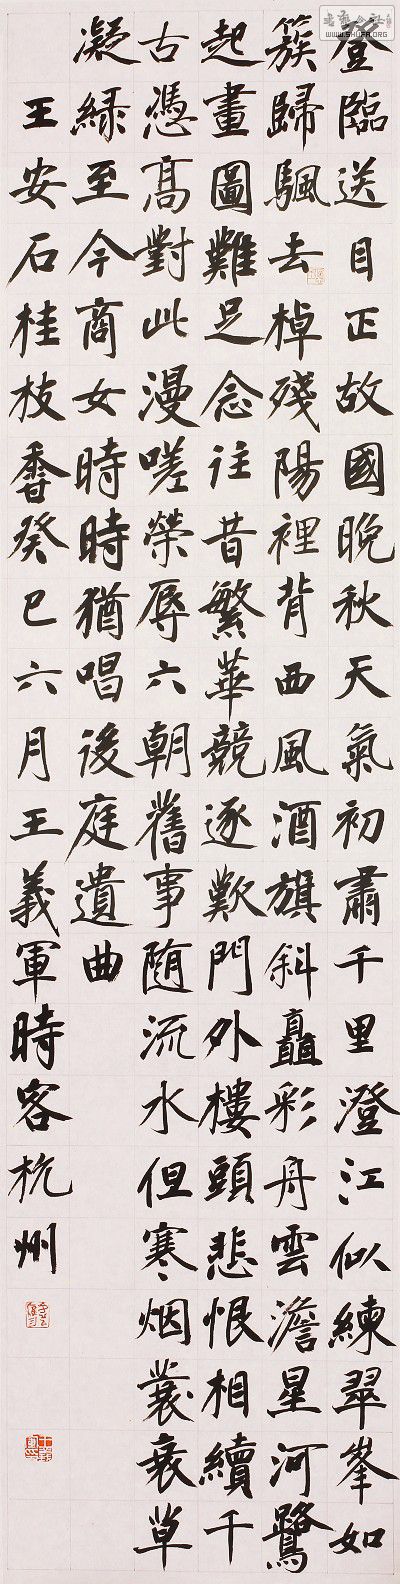 登臨送目正故國晚秋天氣初肅千里澄江似練翠峯如
簇歸颿去棹殘陽裡背西風酒旗斜矗彩舟雲澹星河鷺
起畫圖難足念往昔繁華競逐歎門外樓頭悲恨相續千
古憑高對此漫嗟榮辱六朝舊事隨流水但寒烟蓑衰草
凝綠至今商女時時猶唱後庭遺曲
王安石桂枝香癸巳六月王義軍時客杭州
WWW.SHUFA.ORG